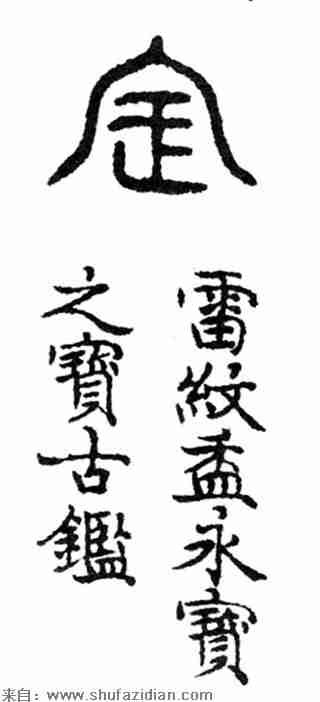 雷紋盉永寶
之寶古鑑
来自：www.shufazidian.com